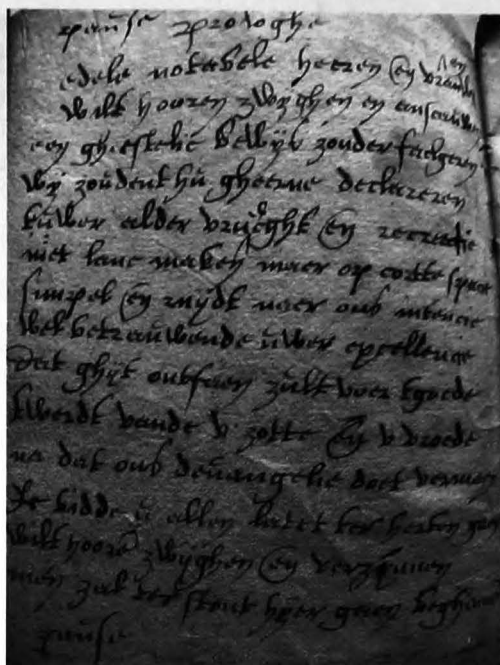 pause prologhe
edele notabele heeren en vrauwen
wilt hooren zwyghen en anscauwen
een gheestelic bewys zonder falgeren
wy zoudent hu gheerne declareren
tuwer alder vrueght en recreatie
niet lanc maken maer op cortte spacie
simpel en rudt naer ons intencie
wel betrauwende uwer excellencie
dat ghyt ontfaen zult voer tgoede
twerdt vande v zotte en v vroede
na dat ons deuangelie doet vermaen
Ic bidde u allen laett ter herten gaen
wilt hooren zwyghen en verzinnen
men zal ter stont hyer gaen beghinnen
pause